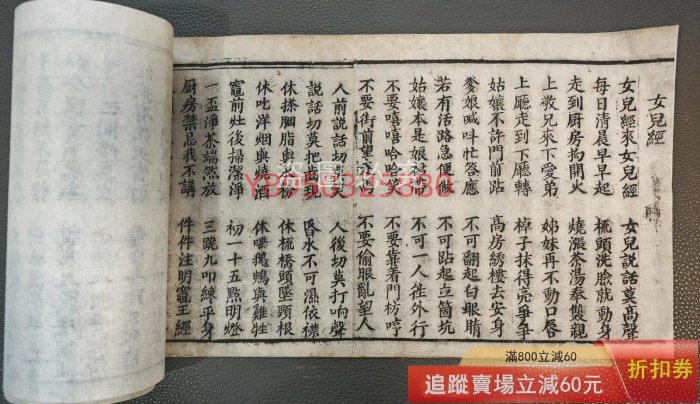 女兒經
女兒經來女兒經　女兒說話莫高聲
每日清晨早早起　梳頭洗臉就動身
走到厨房抅開火　燒漲茶湯奉雙親
上敬兄來下愛弟　姊妹再不動口唇
上廳走到下廳轉　棹子抹得亮爭爭
姑孃不許門前跕　高房綉樓去安身
爹娘喊呌忙答應　不可翻起白眼睛
若有活路急便做　不可跕起立箇坑
姑孃本是娘　不可一人徃外行
不要嘻嘻哈哈笑　不要靠看門枋哼
不要街前望　不要偷眼乱望人
人前說話切　笑　人後切莫打响聲
說話切莫把齒現　水不可濕依襟
休搽胭脂與　粉　休梳橋頭墜頸根
休吃洋烟與燒酒　休喂鵝鴨與雞牲
竈前灶後掃潔淨　初一十五㸃明燈
一盃淨茶端然放　三跪九叩終乎身
厨房禁忌我不講　件件注明竈王經
滿800立減60
追蹤賣場立減60元
折扣券